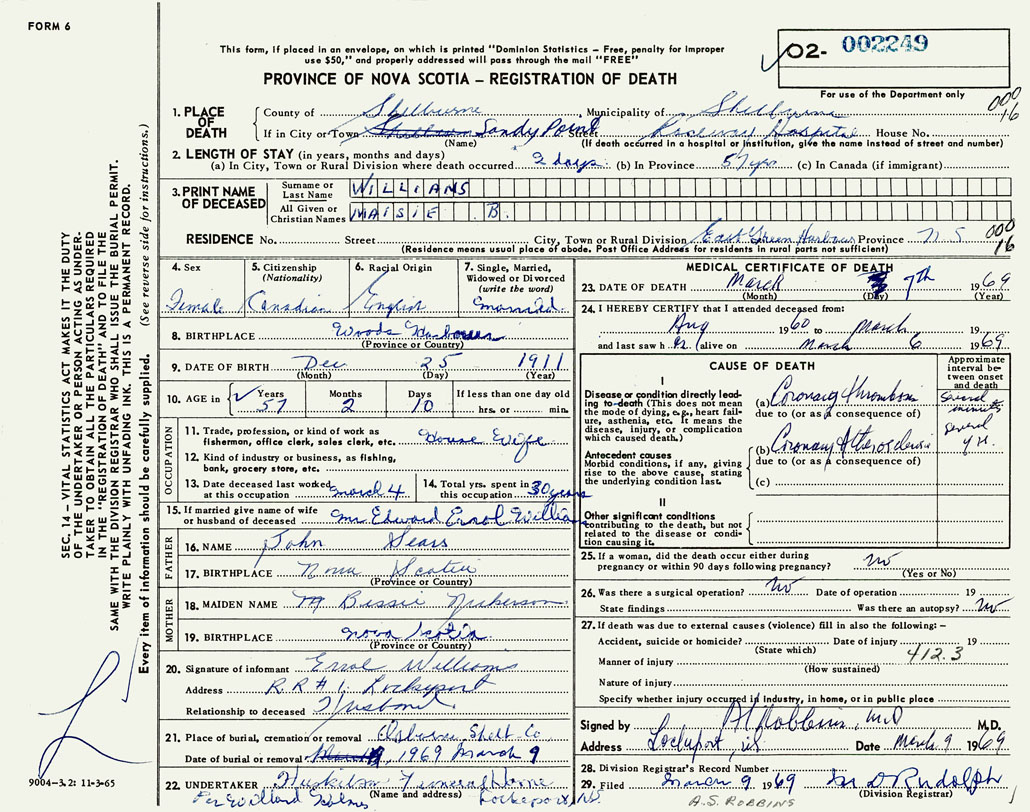 FORM 6
This form, if placed in an envelope, on which is printed "Dominion Statistics – Free, penalty for improper
use $50," and properly addressed will pass through the mail "FREE"
PROVINCE OF NOVA SCOTIA – REGISTRATION OF DEATH
O2- 002249
For use of the Department only
000
16
1. PLACE OF DEATH
County of Shelburne Municipality of Shelburne
If in City or Town Sandy Point Street Roseway Hospital House No.
(Name) (If death occurred in a hospital or institution, give the name instead of street and number)
2. LENGTH OF STAY (in years, months and days)
(a) In City, Town or Rural Division where death occurred 2 days (b) In Province 57 yrs (c) In Canada (if immigrant)
3. PRINT NAME OF DECEASED
Surname or Last Name WILLIAMS
All Given or Christian Names MAISIE B.
RESIDENCE No. Street City, Town or Rural Division East Green Harbour Province N S
000
16
(Residence means usual place of abode. Post Office Address for residents in rural parts not sufficient)
4. Sex Female
5. Citizenship (Nationality) Canadian
6. Racial Origin English
7. Single, Married, Widowed or Divorced (write the word) married
8. BIRTHPLACE Woods Harbour
(Province or Country)
9. DATE OF BIRTH Dec 25 1911
(Month) (Day) (Year)
10. AGE in Years 57 Months 2 Days 10 If less than one day old hrs. or min.
OCCUPATION
11. Trade, profession, or kind of work as fisherman, office clerk, sales clerk, etc. House Wife
12. Kind of industry or business, as fishing, bank, grocery store, etc.
13. Date deceased last worked at this occupation march 4
14. Total yrs. spent in this occupation 30 years
15. If married give name of wife or husband of deceased Mr Edward Errol Williams
FATHER
16. NAME John Sears
17. BIRTHPLACE Nova Scotia
(Province or Country)
MOTHER
18. MAIDEN NAME M Bessie Nickerson
19. BIRTHPLACE Nova Scotia
(Province or Country)
20. Signature of informant Errol Williams
Address R.R #1 Lockeport
Relationship to deceased Husband
21. Place of burial, cremation or removal Osborne Shelb Co
Date of burial or removal 1969 March 9
22. UNDERTAKER Funeral Home
(Name and address) Lockeport N.S.
Per Willard Holmes
MEDICAL CERTIFICATE OF DEATH
23. DATE OF DEATH March 7th 1969
(Month) (Day) (Year)
24. I HEREBY CERTIFY that I attended deceased from:
Aug 1960 to March 19
and last saw her alive on March 6 1969
CAUSE OF DEATH
Approximate interval between onset and death
I
Disease or condition directly leading-to-death (This does not mean the mode of dying, e.g., heart failure, asthenia, etc. It means the disease, injury, or complication which caused death.)
(a) Coronary thrombosis several minutes
due to (or as a consequence of)
Antecedent causes
Morbid conditions, if any, giving rise to the above cause, stating the underlying condition last.
(b) Coronary Atherosclerosis several yr.
due to (or as a consequence of)
(c)
II
Other significant conditions contributing to the death, but not related to the disease or condition causing it.
25. If a woman, did the death occur either during pregnancy or within 90 days following pregnancy? no
(Yes or No)
26. Was there a surgical operation? no Date of operation 19
State findings Was there an autopsy? no
27. If death was due to external causes (violence) fill in also the following: –
Accident, suicide or homicide? Date of injury 19
(State which) 412.3
Manner of injury
(How sustained)
Nature of injury
Specify whether injury occurred in Industry, in home, or in public place
Signed by Robbins, M.D M.D.
Address Lockeport, NS Date March 9 1969
28. Division Registrar's Record Number
29. Filed March 9 1969 M D Rudolph
(Division Registrar)
A.S. ROBBINS
SEC. 14 – VITAL STATISTICS ACT MAKES IT THE DUTY
OF THE UNDERTAKER OR PERSON ACTING AS UNDER-
TAKER TO OBTAIN ALL THE PARTICULARS REQUIRED
IN THE "REGISTRATION OF DEATH" AND TO FILE THE
SAME WITH THE DIVISION REGISTRAR WHO SHALL ISSUE THE BURIAL PERMIT.
WRITE PLAINLY WITH UNFADING INK. THIS IS A PERMANENT RECORD.
Every item of information should be carefully supplied. (See reverse side for instructions.)
9004-3.2: 11-3-65